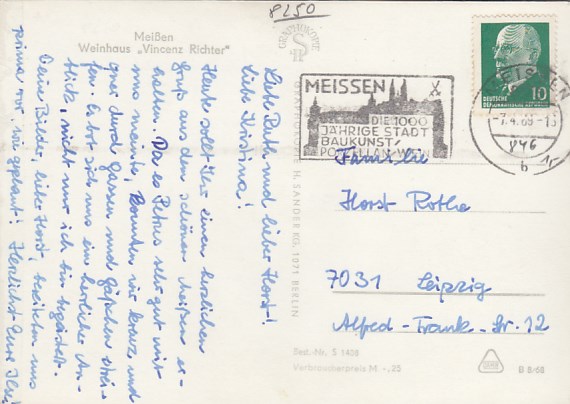 8250
Meißen
Weinhaus „Vincenz Richter"
Liebe Ruth und lieber Horst!
Liebe Kristina!
Heute sollt Ihr einen herzlichen
Gruß aus dem schönen Meißen er-
halten. Da es Petrus sehr gut mit
uns meinte, konnten wir kreuz und
quer durch Gassen und Gäßchen strei-
fen. Es bot sich uns ein herrlicher An-
blick, nicht nur ich bin begeistert.
Deine Bilder, lieber Horst, besitzen uns
prima vor. gepaust! Herzlichst Eure Ilse
GRAPHOKOPIE
H. SANDER KG, 1071 BERLIN
MEISSEN
DIE 1000
JÄHRIGE STADT
BAUKUNST,
PORZELLAN, WEIN
DEUTSCHE
DEMOKRATISCHE
10
MEISSEN
-7.4.69-15
b
Familie
Horst Rothe
7031 Leipzig
Alfred-Frank-Str. 12
Best.-Nr. S 1408
Verbraucherpreis M -,25
B 8/68